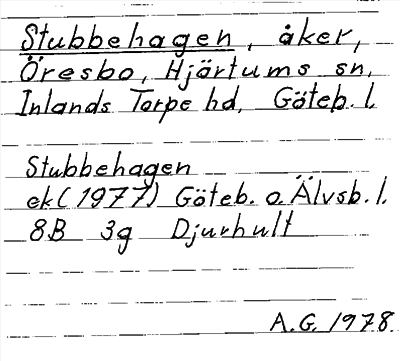 Stubbehagen, åker,
Öresbo, Hjärtums sn,
Inlands Torpe hd, Göteb. l.
Stubbehagen
ek (1977) Göteb. o. Älvsb. l.
8B 3g Djurhult
A.G. 1978.